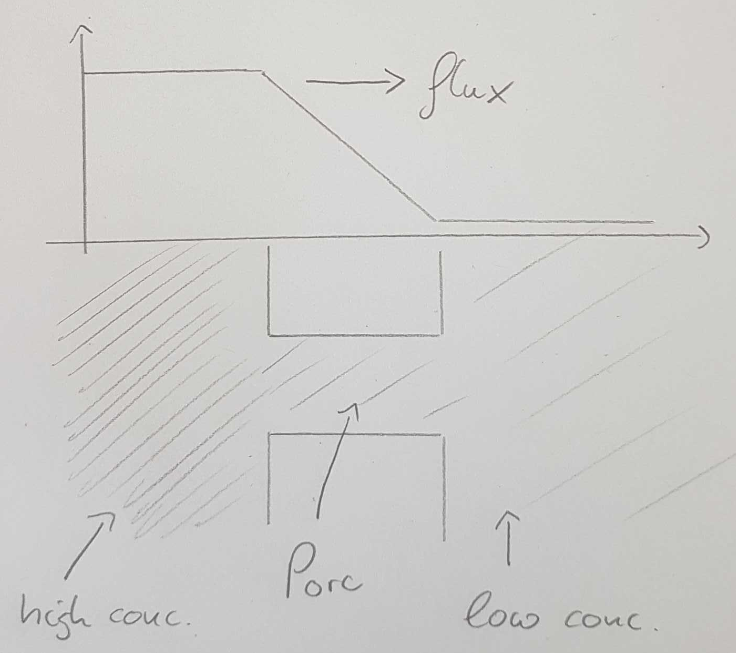 flux
Pore
high conc.
low conc.